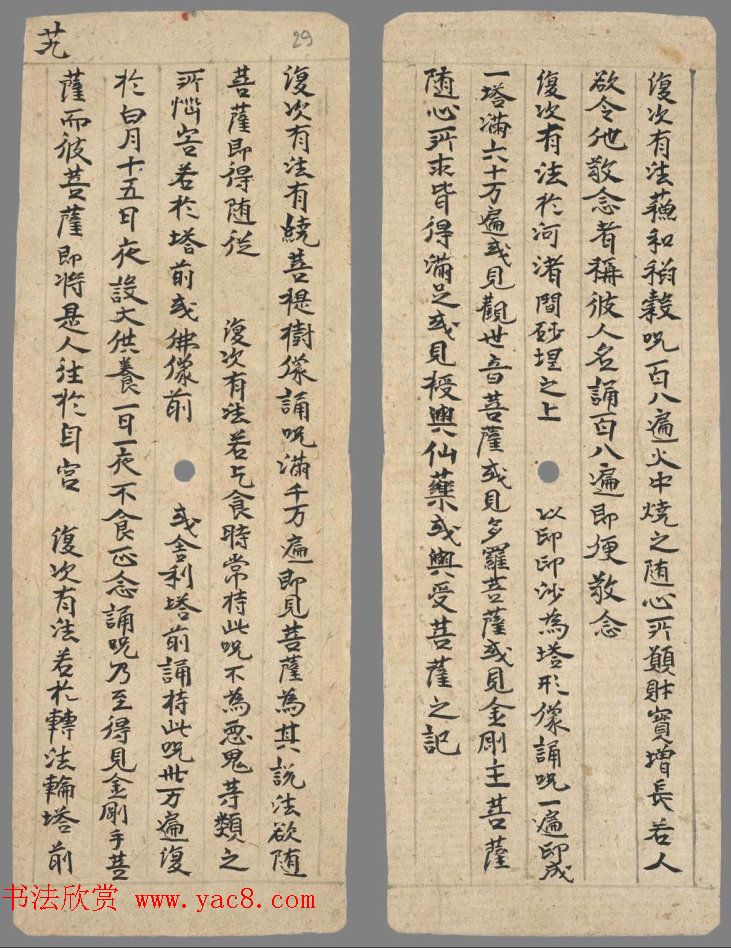 復次有法蘓和稻穀呪一百八遍火中燒之随心所願財寶增長若人
欲令他敬念者稱彼人名誦一百八遍即便敬念
復次有法於河渚間砂埋之上 以印印沙為塔形像誦呪一遍印成
一塔滿六十万遍或見觀世音菩薩或見多羅菩薩或見金剛主菩薩
随心所求皆得滿足或見授與仙藥或與受菩薩之記
29
廿九
復次有法有繞菩提樹像誦呪滿千万遍即見菩薩為其說法欲随
菩薩即得随從 復次有法若乞食時常持此呪不為惡鬼等類之
所惱害若於塔前或佛像前 或舍利塔前誦持此呪卅万遍復
於白月十五日夜設大供養一日一夜不食正念誦呪乃至得見金剛手菩
薩而彼菩薩即將是人往於自宮 復次有法若於轉法輪塔前
书法欣赏 www.yac8.com